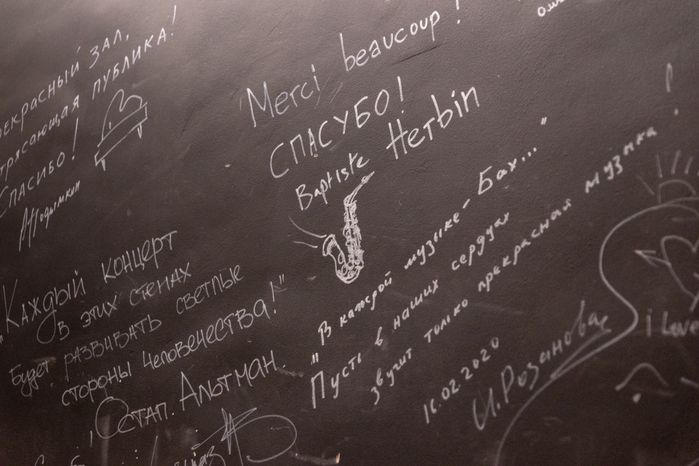 ПРЕКРАСНЫЙ ЗАЛ,
ПОТРЯСАЮЩАЯ ПУБЛИКА!
СПАСИБО!
Merci beaucoup!
СПАСУБО!
Baptiste Herbin
"Каждый концерт
в этих стенах
будет развивать светлые
стороны человечества!"
Остап. Альтман
"В каждой музыке - Бах..."
Пусть в наших сердцах
звучит только прекрасная музыка!
16.02.2020
И. Розанова
i Love